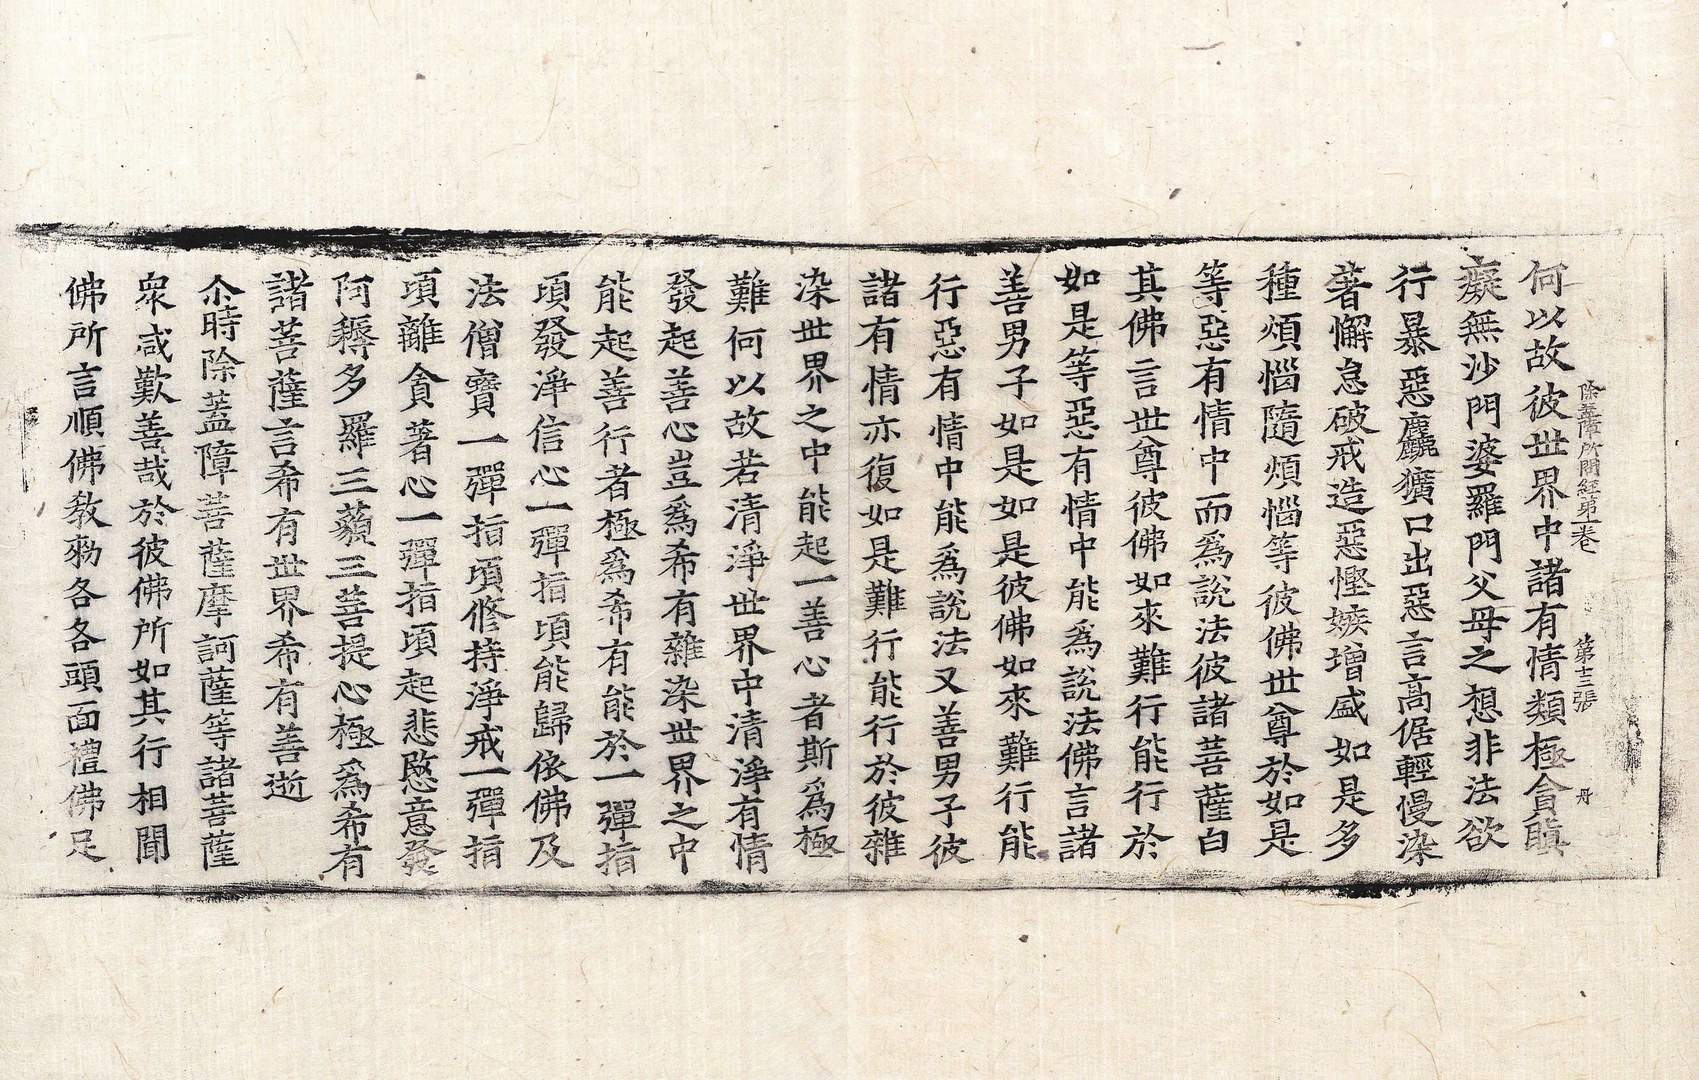 除蓋障所問經第一卷　第十三張　丹
何以故彼世界中諸有情類極貪瞋
癡無沙門婆羅門父母之想非法欲
行暴惡麤獷口出惡言高倨輕慢染
著懈怠破戒造惡慳嫉增盛如是多
種煩惱隨煩惱等彼佛世尊於如是
等惡有情中而爲說法彼諸菩薩白
其佛言世尊彼佛如來難行能行於
如是等惡有情中能爲說法佛言諸
善男子如是如是彼佛如來難行能
行惡有情中能爲說法又善男子彼
諸有情亦復如是難行能行於彼雜
染世界之中能起一善心者斯爲極
難何以故若清淨世界中清淨有情
發起善心豈爲希有雜染世界之中
能起善行者極爲希有能於一彈指
頃發淨信心一彈指頃能歸依佛及
法僧寶一彈指頃修持淨戒一彈指
頃離貪著心一彈指頃起悲愍意發
阿耨多羅三藐三菩提心極爲希有
諸菩薩言希有世界希有善逝
尒時除蓋障菩薩摩訶薩等諸菩薩
衆咸歎善哉於彼佛所如其行相聞
佛所言順佛教勑各各頭面禮佛足